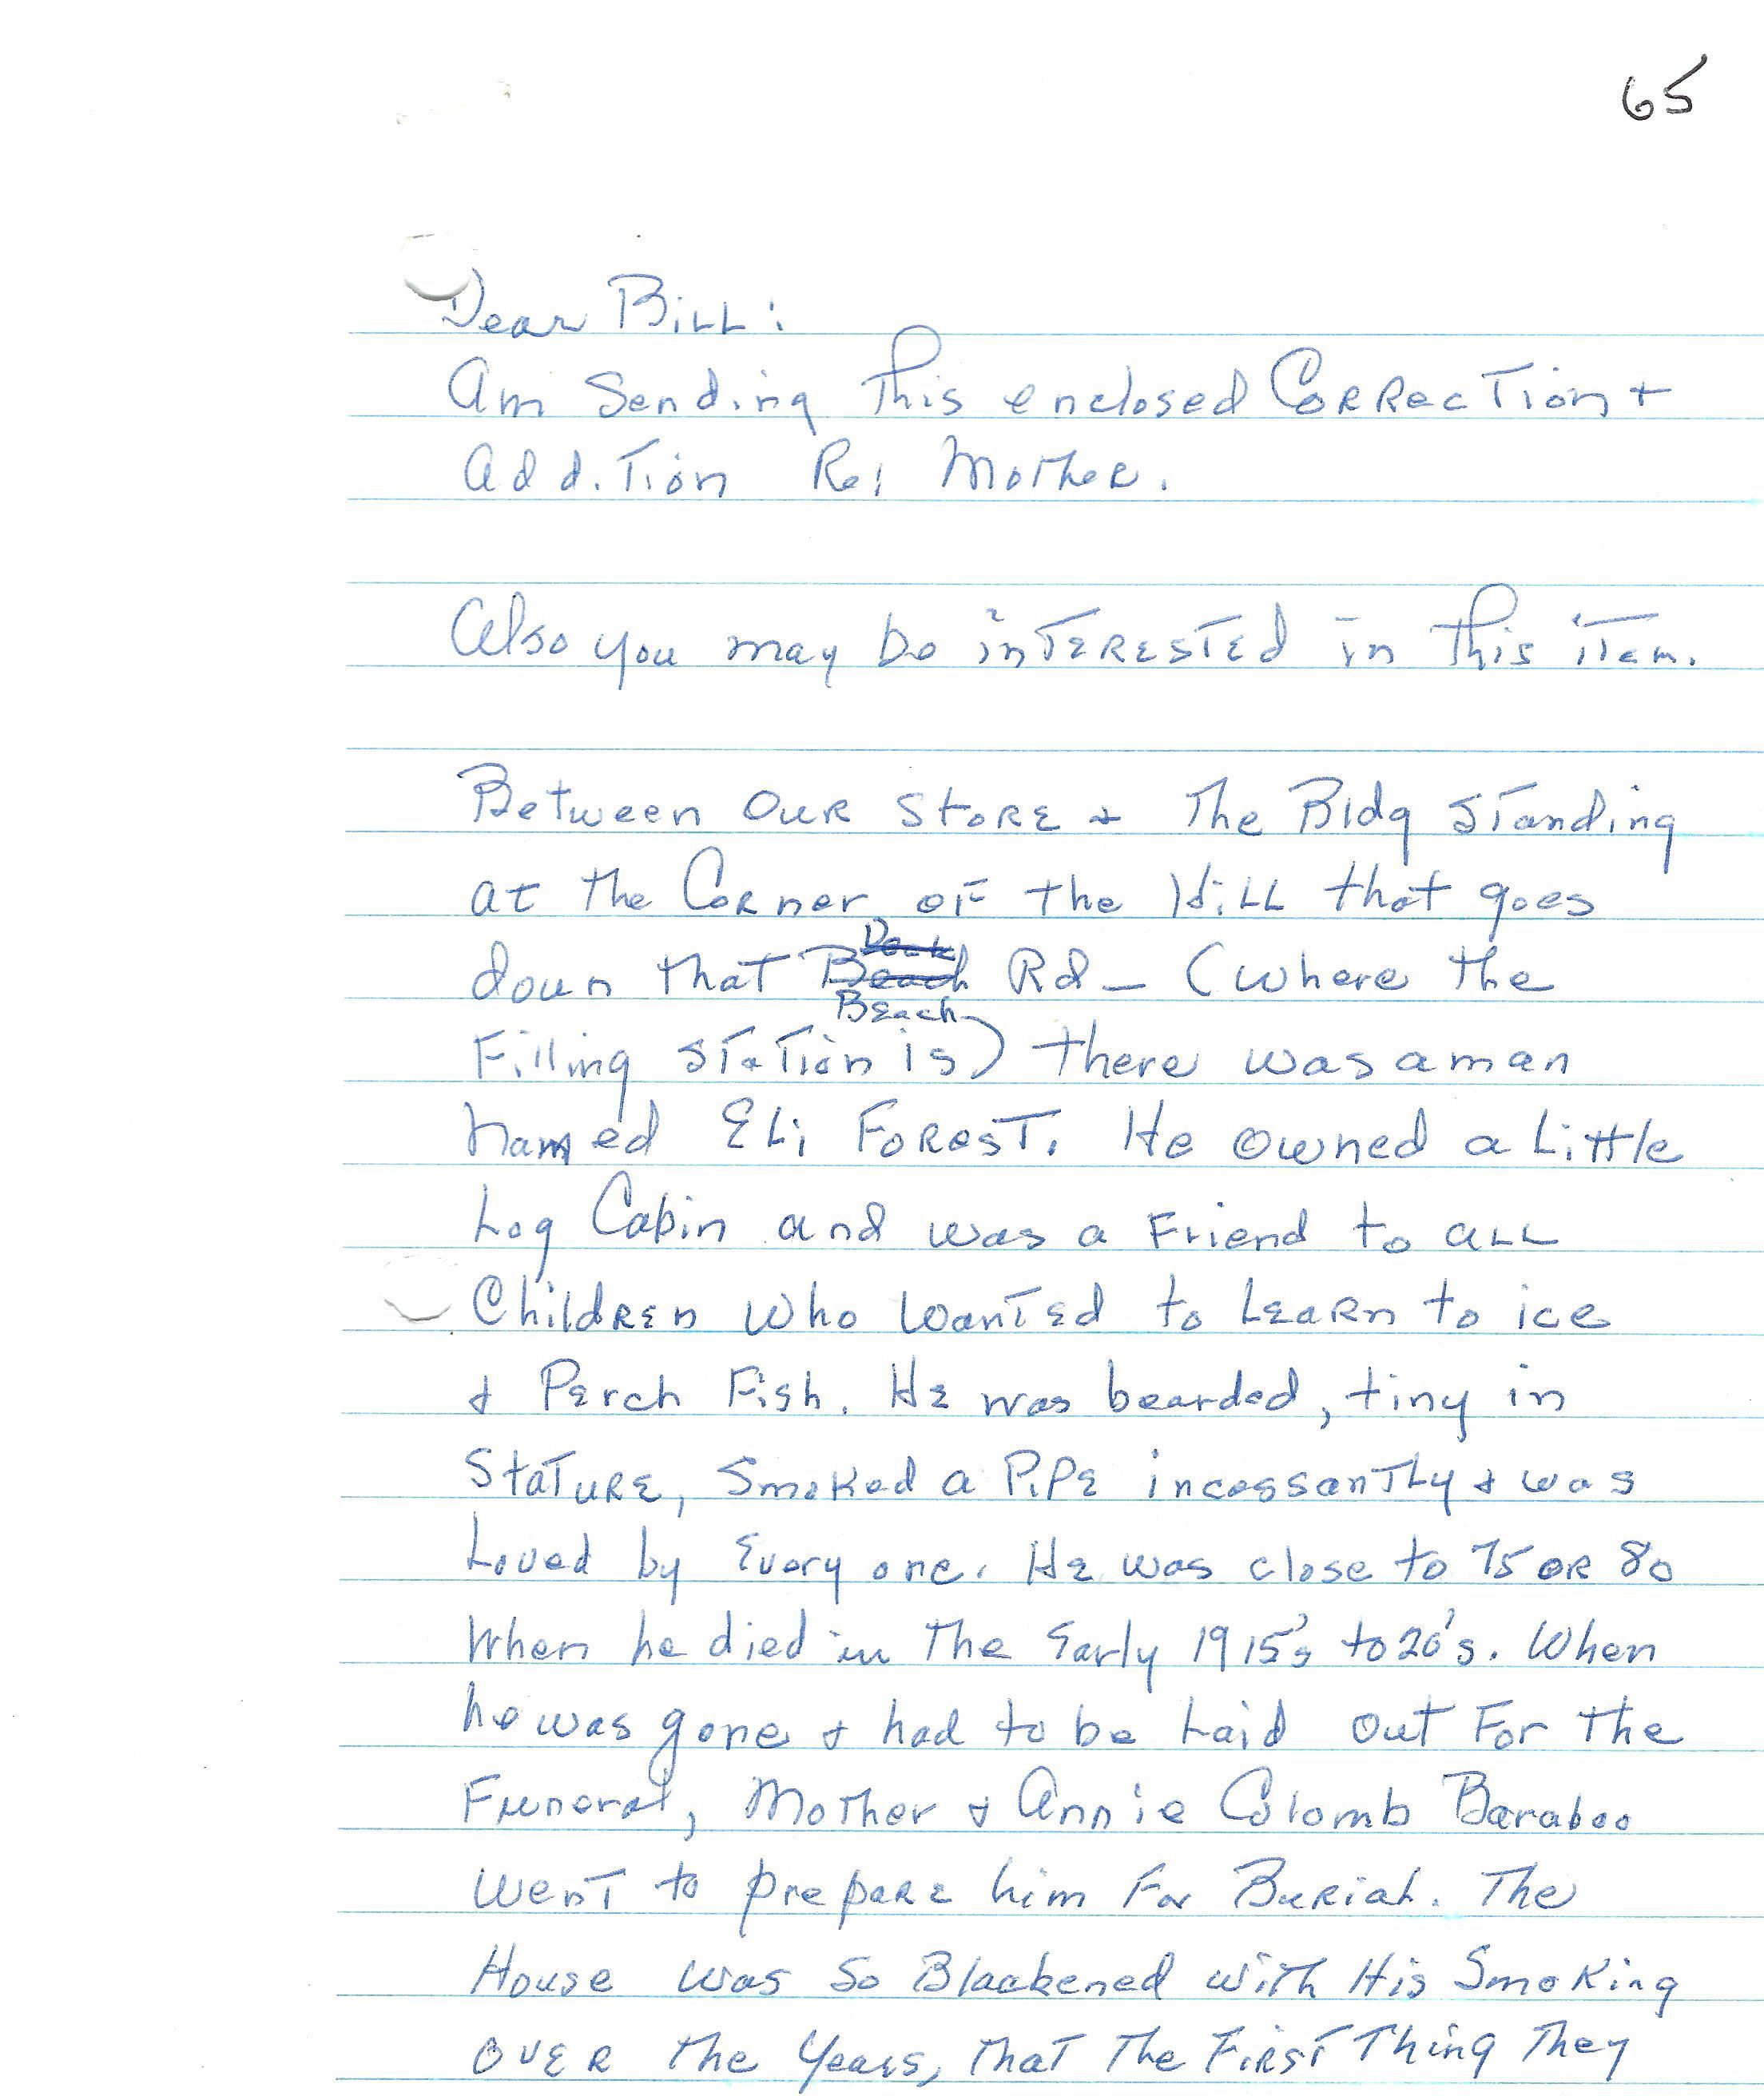 65
Dear Bill:
Am Sending This enclosed Correction +
Addition Re: Mother.
Also you may be interested in this item.
Between our store + The Bldg Standing
at the Corner of the Hill that goes
Dock
down that Beach Rd - (where the
Beach
Filling Station is) there was a man
named Eli Forest. He owned a Little
Log Cabin and was a Friend to all
Children who wanted to Learn to ice
+ Perch Fish. He was bearded, tiny in
Stature, Smoked a Pipe incessantly + was
Loved by Every one. He was close to 75 or 80
When he died in The Early 1915's to 20's. When
he was gone + had to be Laid out For the
Funeral, Mother + Annie Colomb Baraboo
went to prepare him For Burial. The
House was so Blackened with His Smoking
over the Years, that The First Thing They